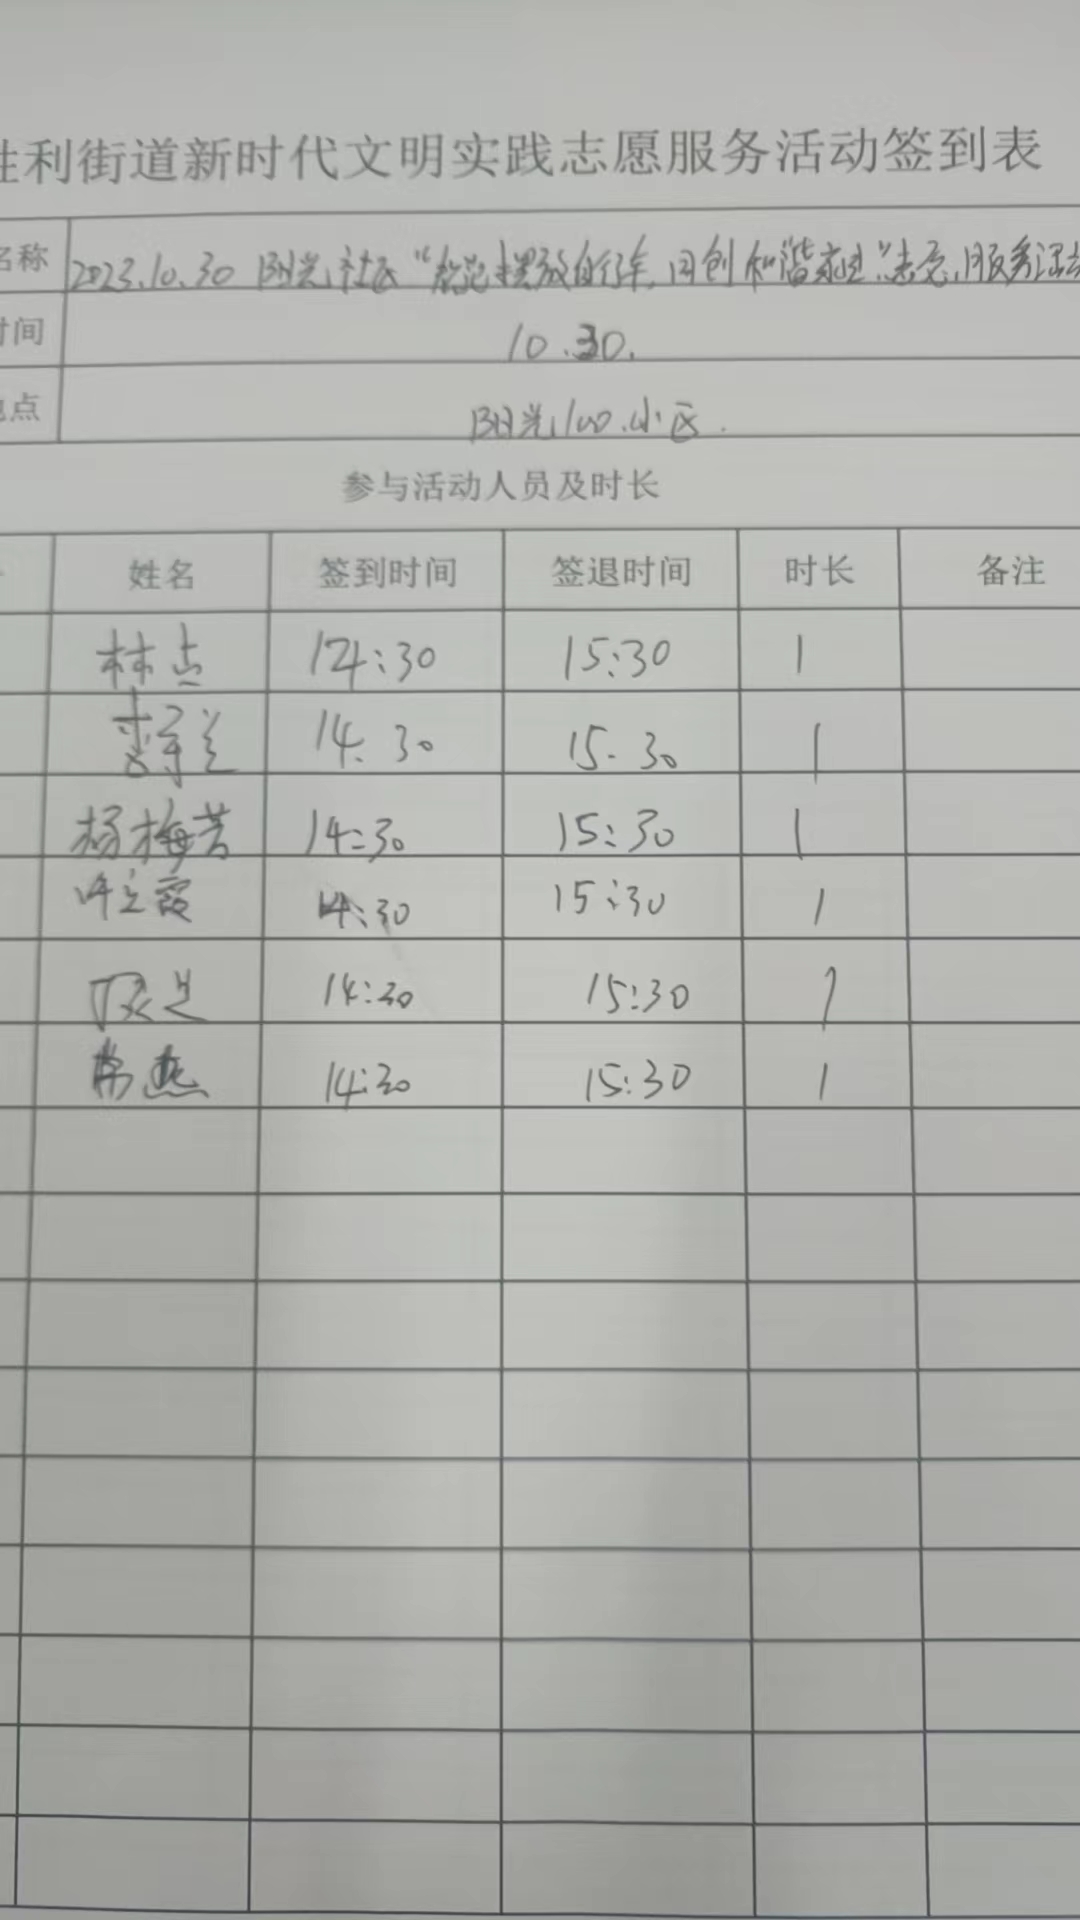 胜利街道新时代文明实践志愿服务活动签到表
名称 2023.10.30 阳光社区“规范摆放自行车,同创和谐家园”志愿服务活动
时间 10.30.
地点 阳光100.小区.
参与活动人员及时长
姓名 签到时间 签退时间 时长 备注
林 14:30 15:30 1
14:30 15:30 1
杨梅芳 14:30 15:30 1
叶立霞 14:30 15:30 1
14:30 15:30 1
常燕 14:30 15:30 1